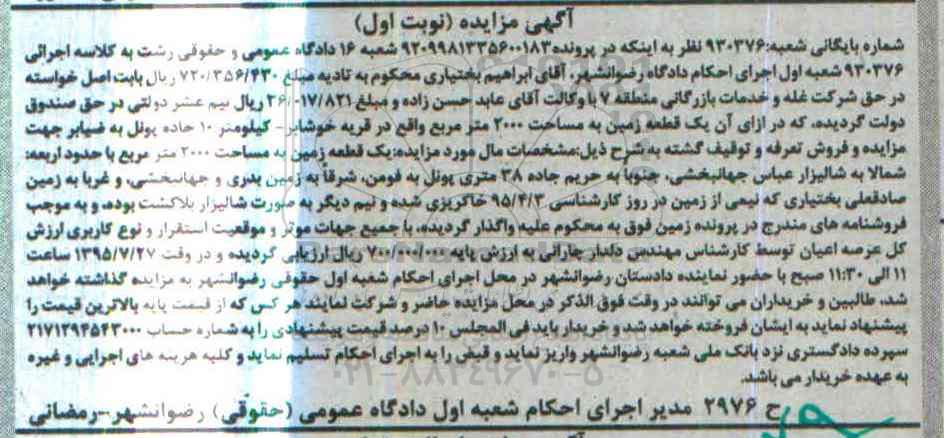 آگهی مزایده (نوبت اول)
شماره بایگانی شعبه:۹۳۰۳۷۶ نظر به اینکه در پرونده۹۲۰۹۹۸۱۳۳۵۶۰۰۱۸۳ شعبه ۱۶ دادگاه عمومی و حقوقی رشت به کلاسه اجرائی
۹۳۰۳۷۶ شعبه اول اجرای احکام دادگاه رضوانشهر، آقای ابراهیم بختیاری محکوم به تادیه مبلغ ۷۲۰/۳۵۶/۴۳۰ ریال بابت اصل خواسته
در حق شرکت غله و خدمات بازرگانی منطقه ۷ با وکالت آقای عابد حسن زاده و مبلغ ۳۶/۰۱۷/۸۲۱ ریال نیم عشر دولتی در حق صندوق
دولت گردیده، که در ازای آن یک قطعه زمین به مساحت ۲۰۰۰ متر مربع واقع در قریه خوشابر- کیلومتر ۱۰ جاده پونل به ضیابر جهت
مزایده و فروش تعرفه و توقیف گشته به شرح ذیل:مشخصات مال مورد مزایده:یک قطعه زمین به مساحت ۲۰۰۰ متر مربع با حدود اربعه:
شمالا به شالیزار عباس جهانبخشی، جنوبا به حریم جاده ۳۸ متری پونل به فومن، شرقاً به زمین بدری و جهانبخشی، و غربا به زمین
صادقعلی بختیاری که نیمی از زمین در روز کارشناسی ۹۵/۴/۳ خاکریزی شده و نیم دیگر به صورت شالیزار بلاکشت بوده، و به موجب
فروشنامه های مندرج در پرونده زمین فوق به محکوم علیه واگذار گردیده، با جمیع جهات موثر و موقعیت استقرار و نوع کاربری ارزش
کل عرصه اعیان توسط کارشناس مهندس دلدار چارانی به ارزش پایه ۷۰۰/۰۰۰/۰۰۰ ریال ارزیابی گردیده و در وقت ۱۳۹۵/۷/۲۷ ساعت
۱۱ الی ۱۱:۳۰ صبح با حضور نماینده دادستان رضوانشهر در محل اجرای احکام شعبه اول حقوقی رضوانشهر به مزایده گذاشته خواهد
شد، طالبین و خریداران می توانند در وقت فوق الذکر در محل مزایده حاضر و شرکت نمایند هر کس که از قیمت پایه بالاترین قیمت را
پیشنهاد نماید به ایشان فروخته خواهد شد و خریدار باید فی المجلس ۱۰ درصد قیمت پیشنهادی را به شماره حساب ۲۱۷۱۲۹۴۵۴۳۰۰۰
سپرده دادگستری نزد بانک ملی شعبه رضوانشهر واریز نماید و قبض را به اجرای احکام تسلیم نماید و کلیه هزینه های اجرایی و غیره
به عهده خریدار می باشد.
۰۲۱-۸۸۳۴۹۶۷۰-۵
ح ۲۹۷۶ مدیر اجرای احکام شعبه اول دادگاه عمومی (حقوقی) رضوانشهر-رمضانی